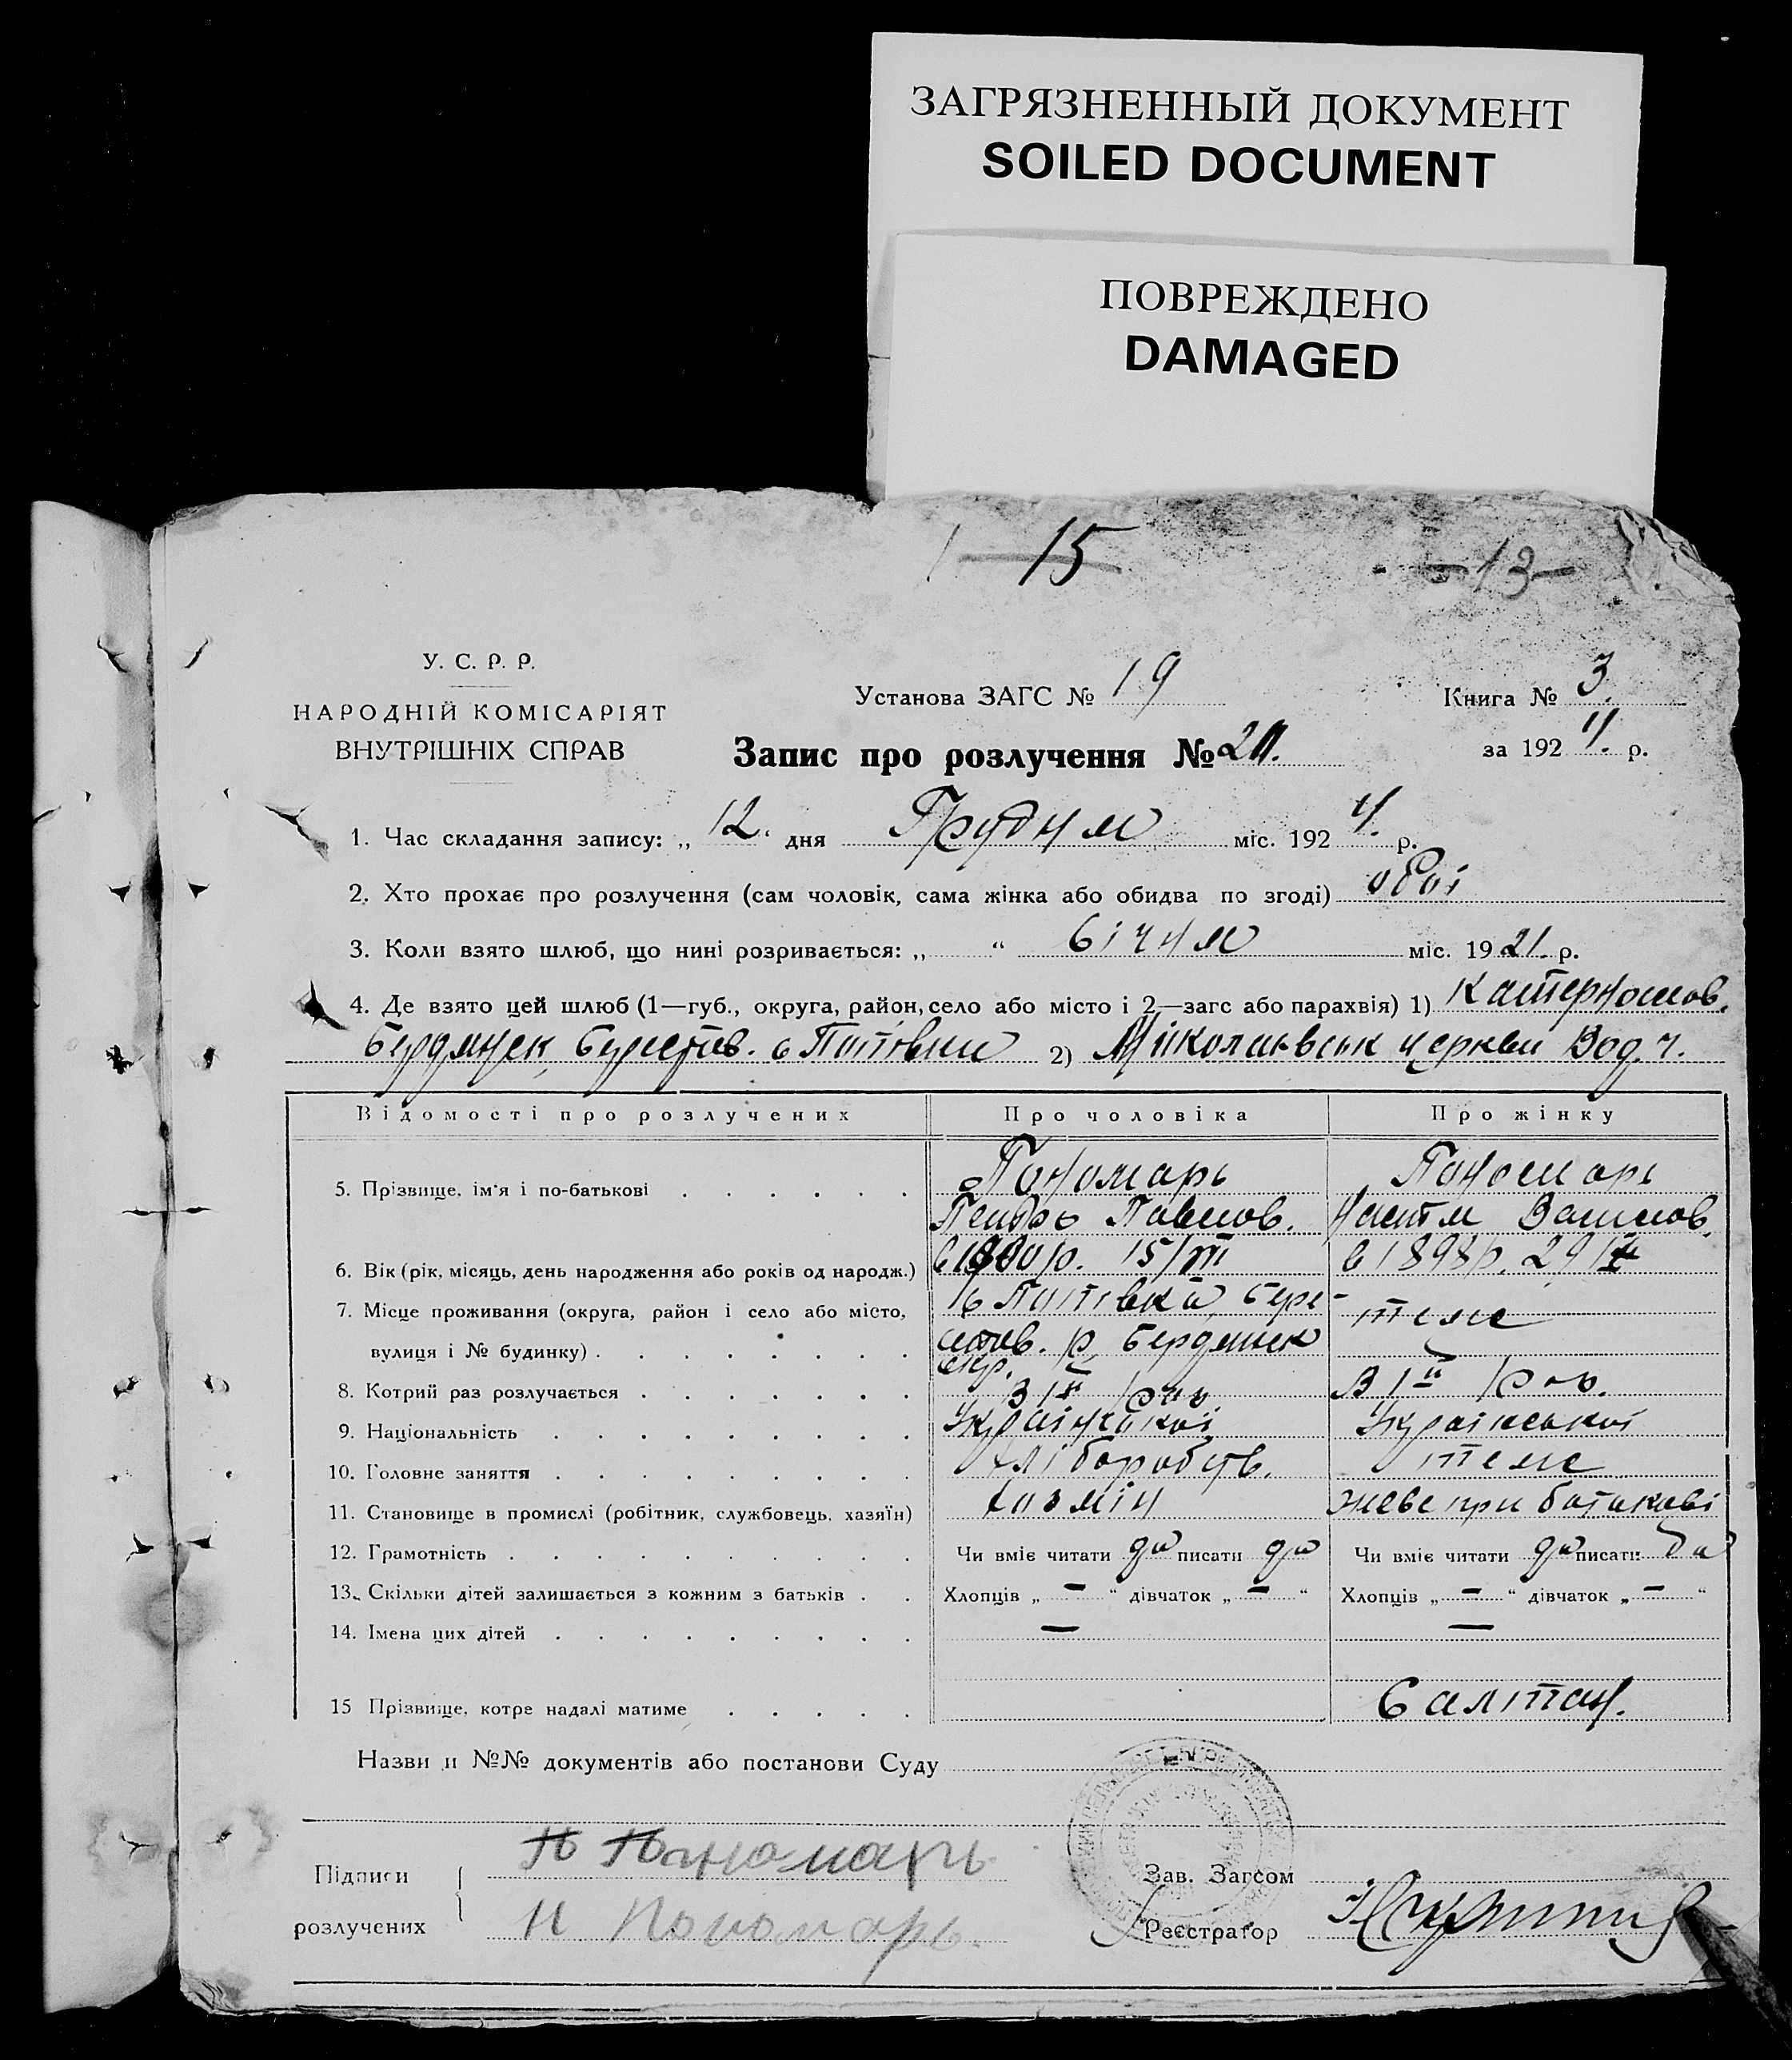 ЗАГРЯЗНЕННЫЙ ДОКУМЕНТ
SOILED DOCUMENT
ПОВРЕЖДЕНО
DAMAGED
15
-13-
У. С. Р. Р.
НАРОДНІЙ КОМІСАРІЯТ
ВНУТРІШНІХ СПРАВ
Установа ЗАГС № 19
Книга № 3.
за 192 4. р.
Запис про розлучення №
1. Час складання запису: „ 12. дня Грудня міс. 192 4. р.
2. Хто прохає про розлучення (сам чоловік, сама жінка або обидва по згоді) обоі
3. Коли взято шлюб, що нині розривається: „ “ Січня міс. 19 21. р.
4. Де взято цей шлюб (1—губ., округа, район, село або місто і 2—загс або парахвія) 1) Катернослав.
Бердянськ, Берестов. с Попівки 2) церкви
Відомості про розлучених
Про чоловіка
Про жінку
5. Прізвище, ім'я і по-батькові
Пономарь
Пономарь
Павлов.
6. Вік (рік, місяць, день народження або років од народж.)
15/III
с 1898 р. 29
7. Місце проживання (округа, район і село або місто,
вулиця і № будинку)
с Попівка, Бере-
стов. р, Бердянськ
окр.
теж
8. Котрий раз розлучається
В І й раз.
В І й раз.
9. Національність
Української
Української
10. Головне заняття
хліборобств.
теж
11. Становище в промислі (робітник, службовець, хазяїн)
хазяін
живе при батькові
12. Грамотність
Чи вміє читати да писати да
Чи вміє читати да писати да
13. Скільки дітей залишається з кожним з батьків
Хлопців „ — “ дівчаток „ — “
Хлопців „ — “ дівчаток „ — “
14. Імена цих дітей
—
—
15 Прізвище, котре надалі матиме
Салтан.
Назви и №№ документів або постанови Суду
Підписи
розлучених
П Пономарь
Н Пономарь.
Зав. Загсом
Реєстратор